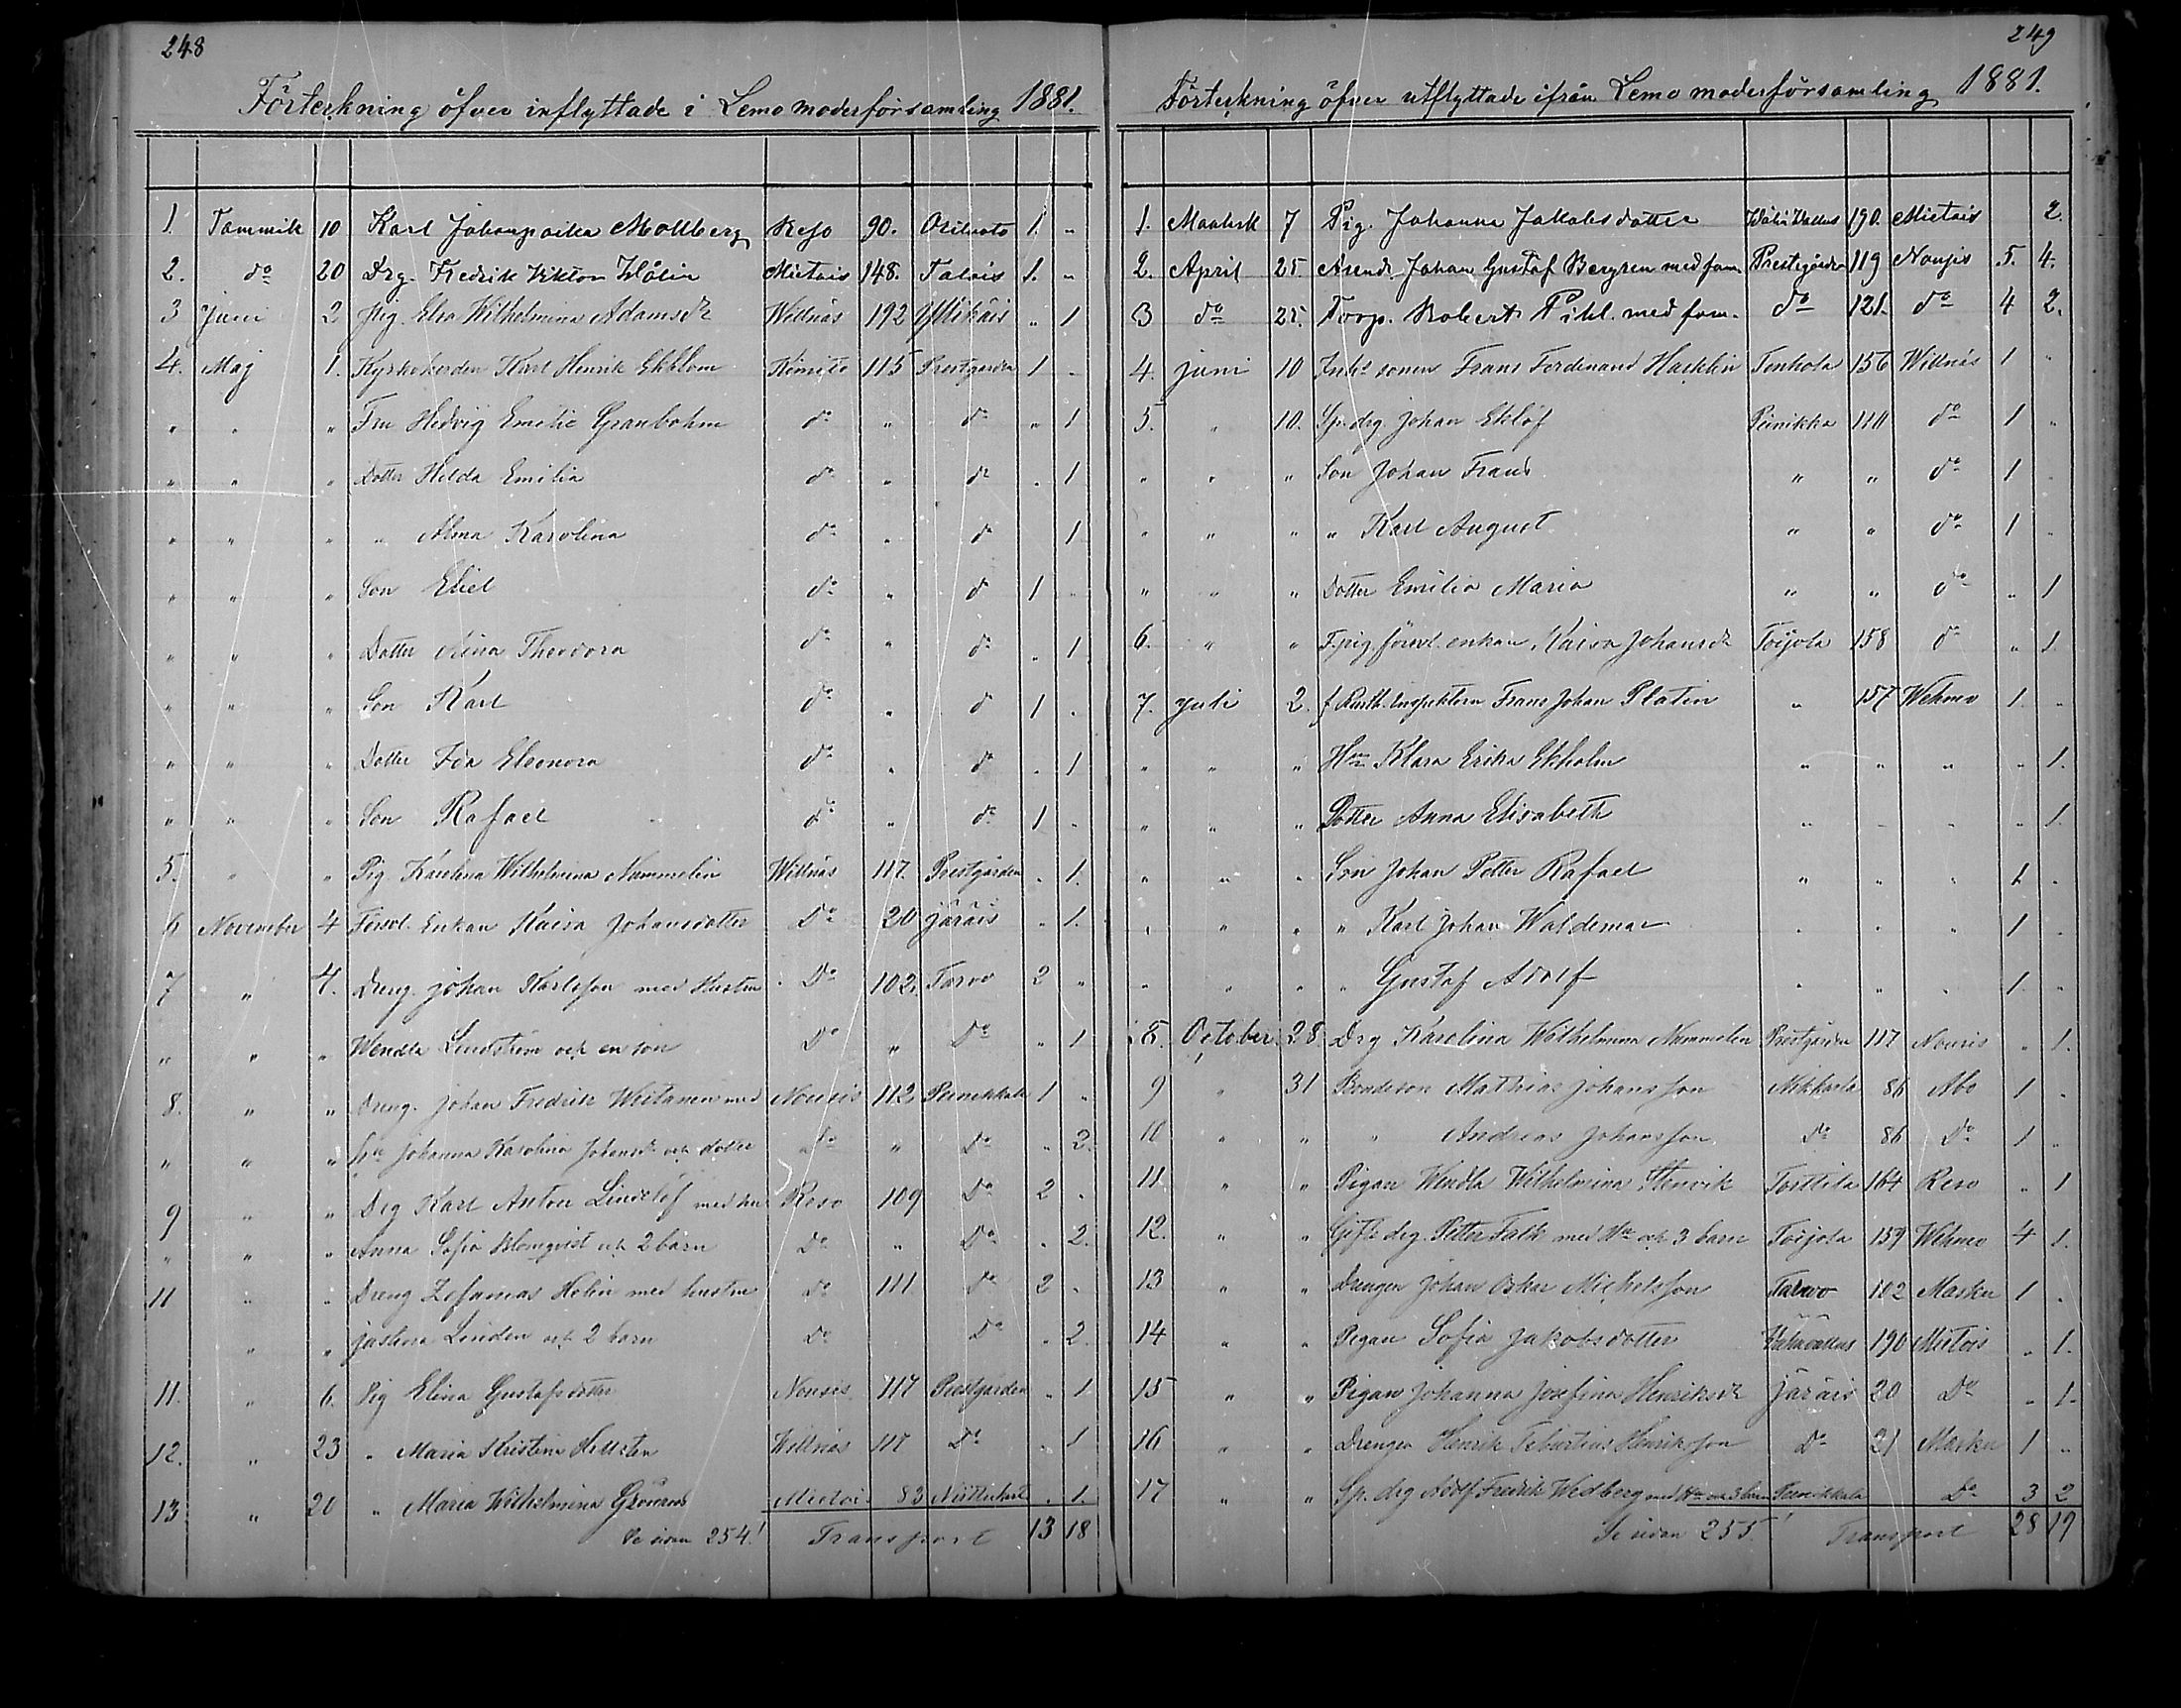 248
Förteckning öfver inflyttade i Lemo moderförsamling 1881.
1. Tammik 10 Karl Johanpoika Mollberg Resp 90. 1. "
2. do 20 Drg. Fredrik Viktor Wälin Mietois 148. Talois 1. "
3 Juni 2 Pig. Elsa Wilhelmina Adamsdr Willnäs 192 Yltikäis " 1
4. Maj 1. Kyrkoherden Karl Henrik Ekblom Kimito 115 Prestgården 1 "
" " " Fru Hedvig Emilie Granbohm do " do " 1
" " " Dotter Hilda Emilia do " do " 1
" " " " Alma Karolina do " do 1
" " " Son Eliel do " do 1 "
" " " Dotter Aina Theodora do " do " 1
" " " Son Karl do " do 1 "
" " " Dotter Ida Eleonora do " do " 1
" " " Son Rafael do " do 1 "
5. " " Pig. Karolina Wilhelmina Nummelin Willnäs 117 Prestgården " 1.
6 November 4 Förevl. Enkan Kaisa Johansdotter Do 20 Järäis " 1.
7 " 4. Dreng. Johan Karlsson med Hustru Do 102. Tarvo 2 "
" " " Wendla Lindström och en son Do " Do " 1
8. " " Dreng. Johan Fredrik Weitanen med Nousis 112 Peinikkala 1 "
" " " Hu Johanna Karolina Johansdr och dotter Do " Do " 2.
9 " " Drg Karl Anton Lindelöf med hu Reso 109 Do 2 "
" " " Anna Sofia Blomqvist och 2 barn Do " Do " 2.
11 " " Dreng Zefanias Holin med hustru Do 111 Do 2 "
" " Justina Linden och 2 barn Do Do " 2.
11. " 6. Pig Elina Gustafsdotter Nousis 117 Prestgården " 1
12. " 23 " Maria Kristina Hellsten Willnäs 117 Do " 1
13 " 20 " Maria Wilhelmina Mietois 83 " 1.
Se sidan 254! Transport 13 18
249
Förteckning öfver utflyttade ifrån Lemo moderförsamling 1881.
1. Maalisk 7 Pig. Johanna Jakobsdotter 190. Mietois 2.
2. April 25. Arend. Johan Gustaf Bergren med fam. Prestgården 119 Nousis 5. 4.
3 do 25. Torp. Robert Pihl. med fam. do 121. do 4 2.
4. Juni 10 Inhs sonen Frans Ferdinand Hacklin Tonkola 156 Willnäs 1 "
5. " 10. Sp. drg. Johan Eklöf Peinikka 110 do 1 "
" " " Son Johan Frans " " do 1 "
" " " " Karl August " " do 1 "
" " " Dotter Emilia Maria " " do " 1
6. " " F.pig. försvl. enkan Kaisa Johansdr Toijola 158 do " 1
7. Juli 2. f Rusth. inspektorn Frans Johan Platin " 157 Wehmo 1. "
" " " Hu Klara Erika Ekholm " " " " 1.
" " " Dotter Anna Elisabeth " " " " 1.
" " " Son Johan Petter Rafael " " " 1 "
" " " " Karl Johan Waldemar " " " 1 "
" " " " Gustaf Adolf " " " 1. "
8. October 28 Drg Karolina Wilhelmina Nummelin Prestgården 117 Nousis " 1.
9 " 31 Bondeson Mathias Johansson Nikkarla 86 Abo 1 "
10 " " " Andreas Johansson Do 86 Do 1 "
11. " " Pigan Wendla Wilhelmina Stenvik Torttila 164 Reso " 1
12. " " Gifte drg. Petter Falk med Hu och 3 barn Toijola 159 Wehmo 4 1.
13 " " Drengen Johan Oskar Michelsson Tarvo 102 Masku 1 "
14 " " Pigan Sofia Jakobsdotter 190 Mietois " 1.
15 " " Pigan Johanna Josefina Henriksdr Järäis 20 Do " 1.
16 " " Drengen Henrik Teburtius Henriksson Do 21 Masku 1 "
17 " " Sp. drg Adolf Fredrik Wedberg med Hu och 3 barn Peinikkala Do 3 2
Se sidan 255! Transport 28 19